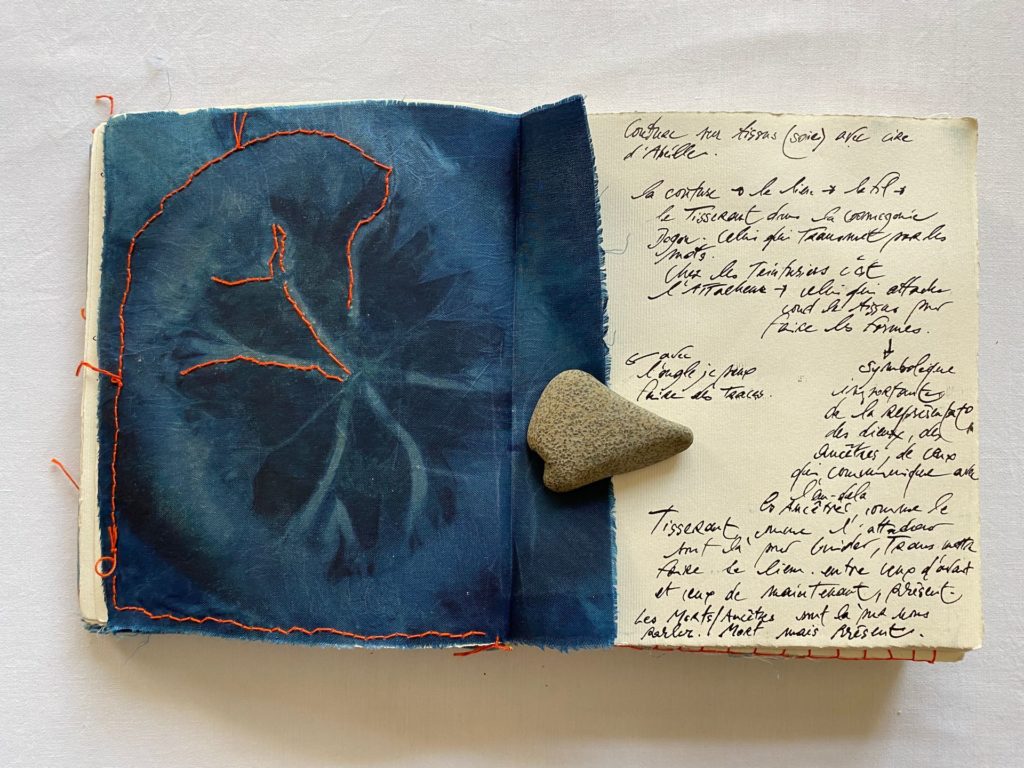 Couture sur tissus (soie) avec cire
d'Abeille.
la couture → le lien → le fil →
le Tisserant dans la Cosmogonie
Dogon. Celui qui Transmet par les
mots.
chez les Teinturiers c'est
l'Attacheur → celui qui attache
coud le tissus pour
faire les formes.
↓
symbolique
importante
de la représentat°
des dieux, des
Ancêtres, de ceux
qui communique avec
l'au-delà
avec
l'ongle je peux
faire des traces.
les Ancêtres, comme le
Tisserant, comme l'attacheur
sont là pour Guider, Transmettre
faire le lien entre ceux d'avant
et ceux de maintenant, présent.
Les Morts/Ancêtres sont là pour nous
parler. Mort mais Présent.